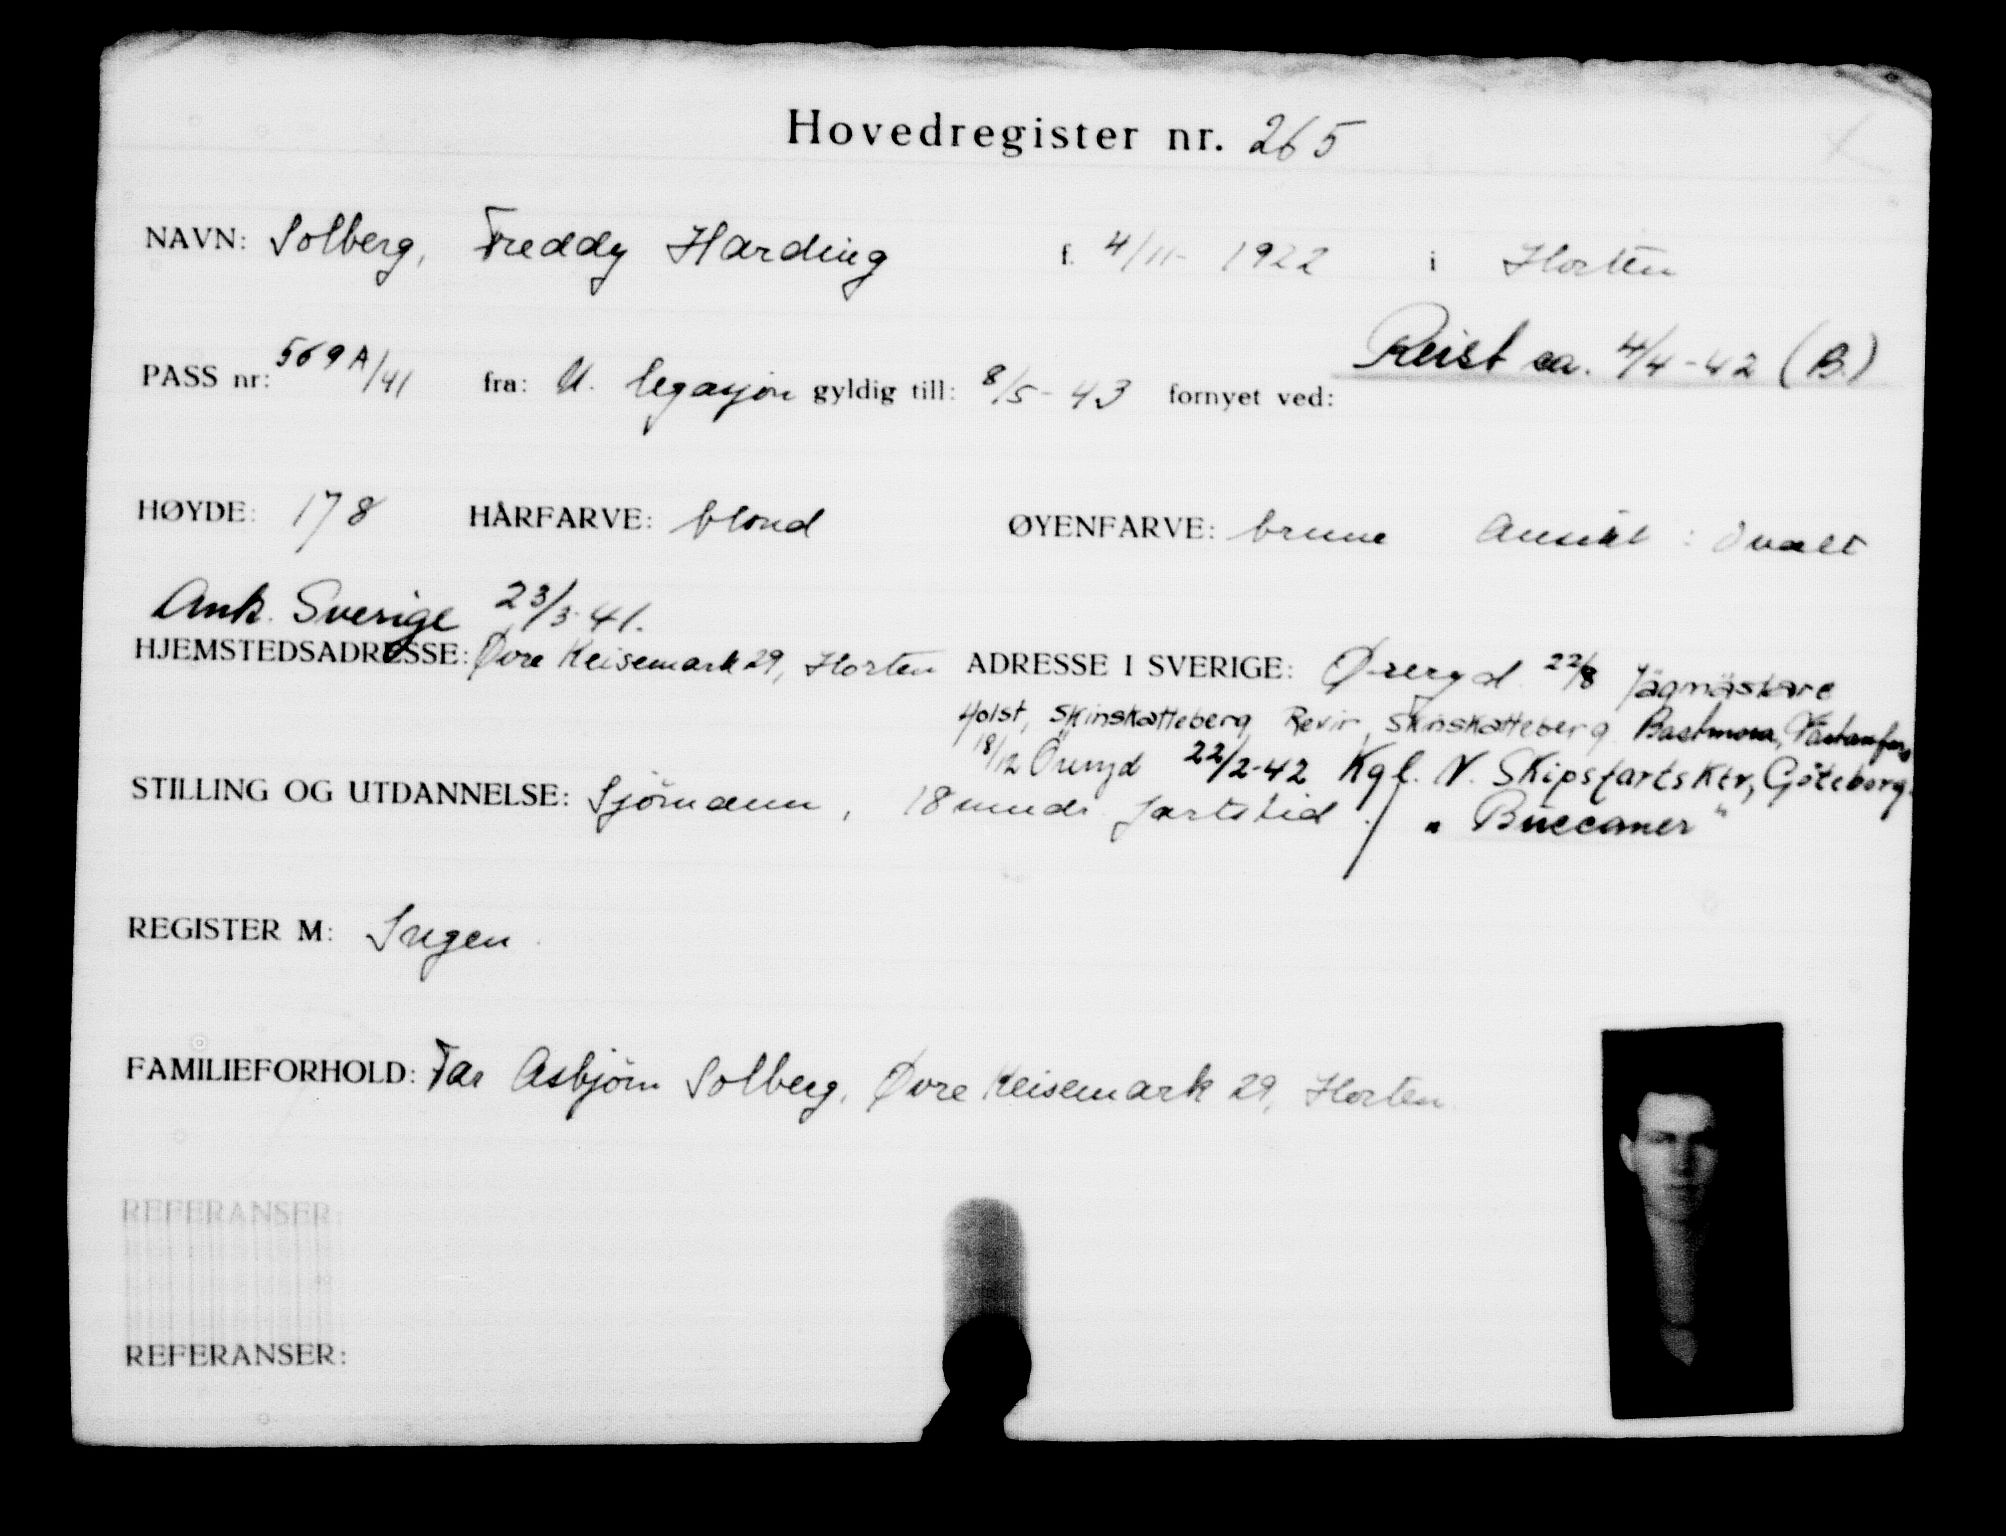 Hovedregister nr. 265
NAVN: Solberg, Freddy Harding f. 4/11- 1922 i Horten
Reist ca. 4/4-42 (B.)
PASS nr: 569 A/41 fra: N. legasjon gyldig till: 8/5-43 fornyet ved:
HØYDE: 178 HÅRFARVE: blond ØYENFARVE: brune Ansikt: Ovalt
Ank. Sverige 23/3-41.
HJEMSTEDSADRESSE: Øvre Keisemark 29, Horten ADRESSE I SVERIGE: Øreryd 22/8 Jägmästare
Holst, Skinskatteberg Revir, Skinskatteberg Bastmora, Västanfors
18/12 Öreryd 22/2-42 Kgl. N. Skipsfartsktr, Göteborg.
STILLING OG UTDANNELSE: Sjømann, 18 mnds fartstid. / "Buccaner"
REGISTER M: Ingen.
FAMILIEFORHOLD: Far Asbjørn Solberg, Øvre Keisemark 29, Horten.
REFERANSER:
REFERANSER: